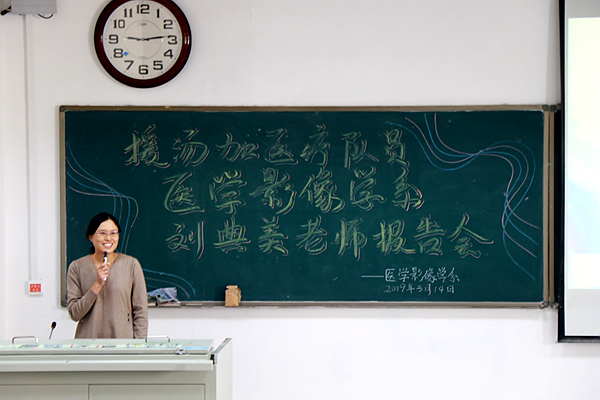 12
1
2
3
4
5
6
7
8
9
10
11
援汤加医疗队员
医学影像学系
刘典美老师报告会
——医学影像学系
2019年3月14日